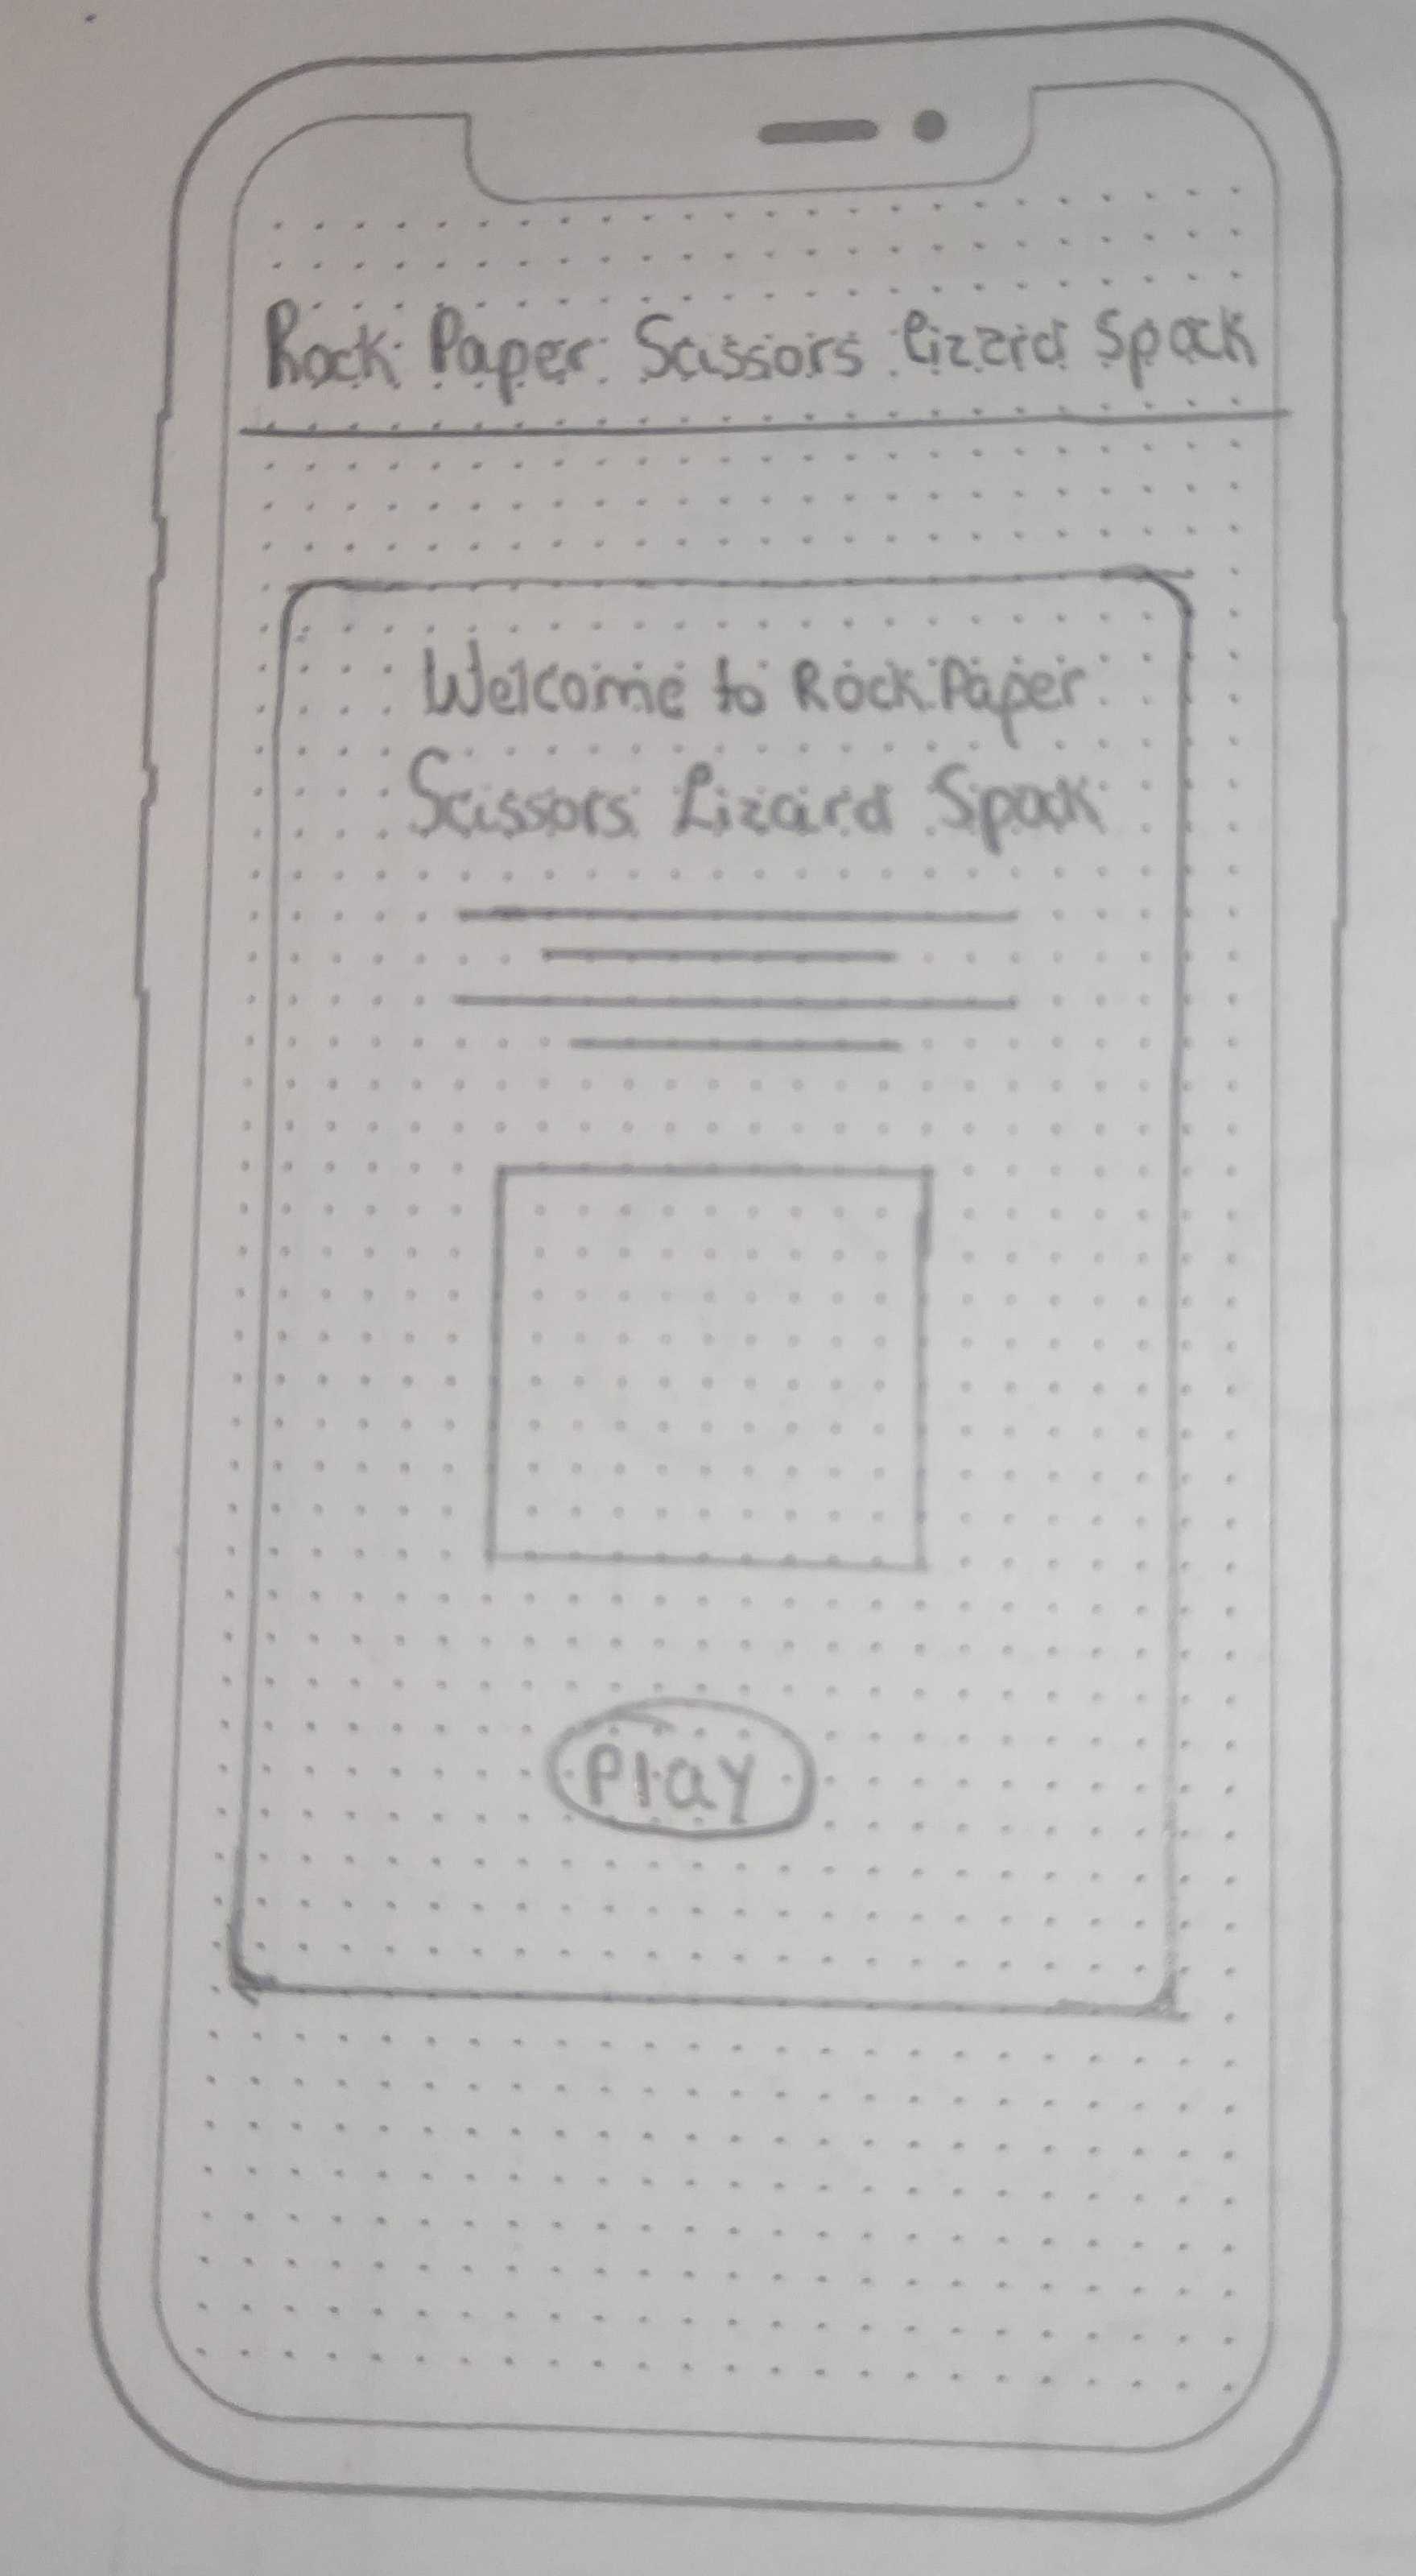 Rock Paper Scissors Lizard Spock
Welcome to Rock Paper
Scissors Lizard Spock
Play